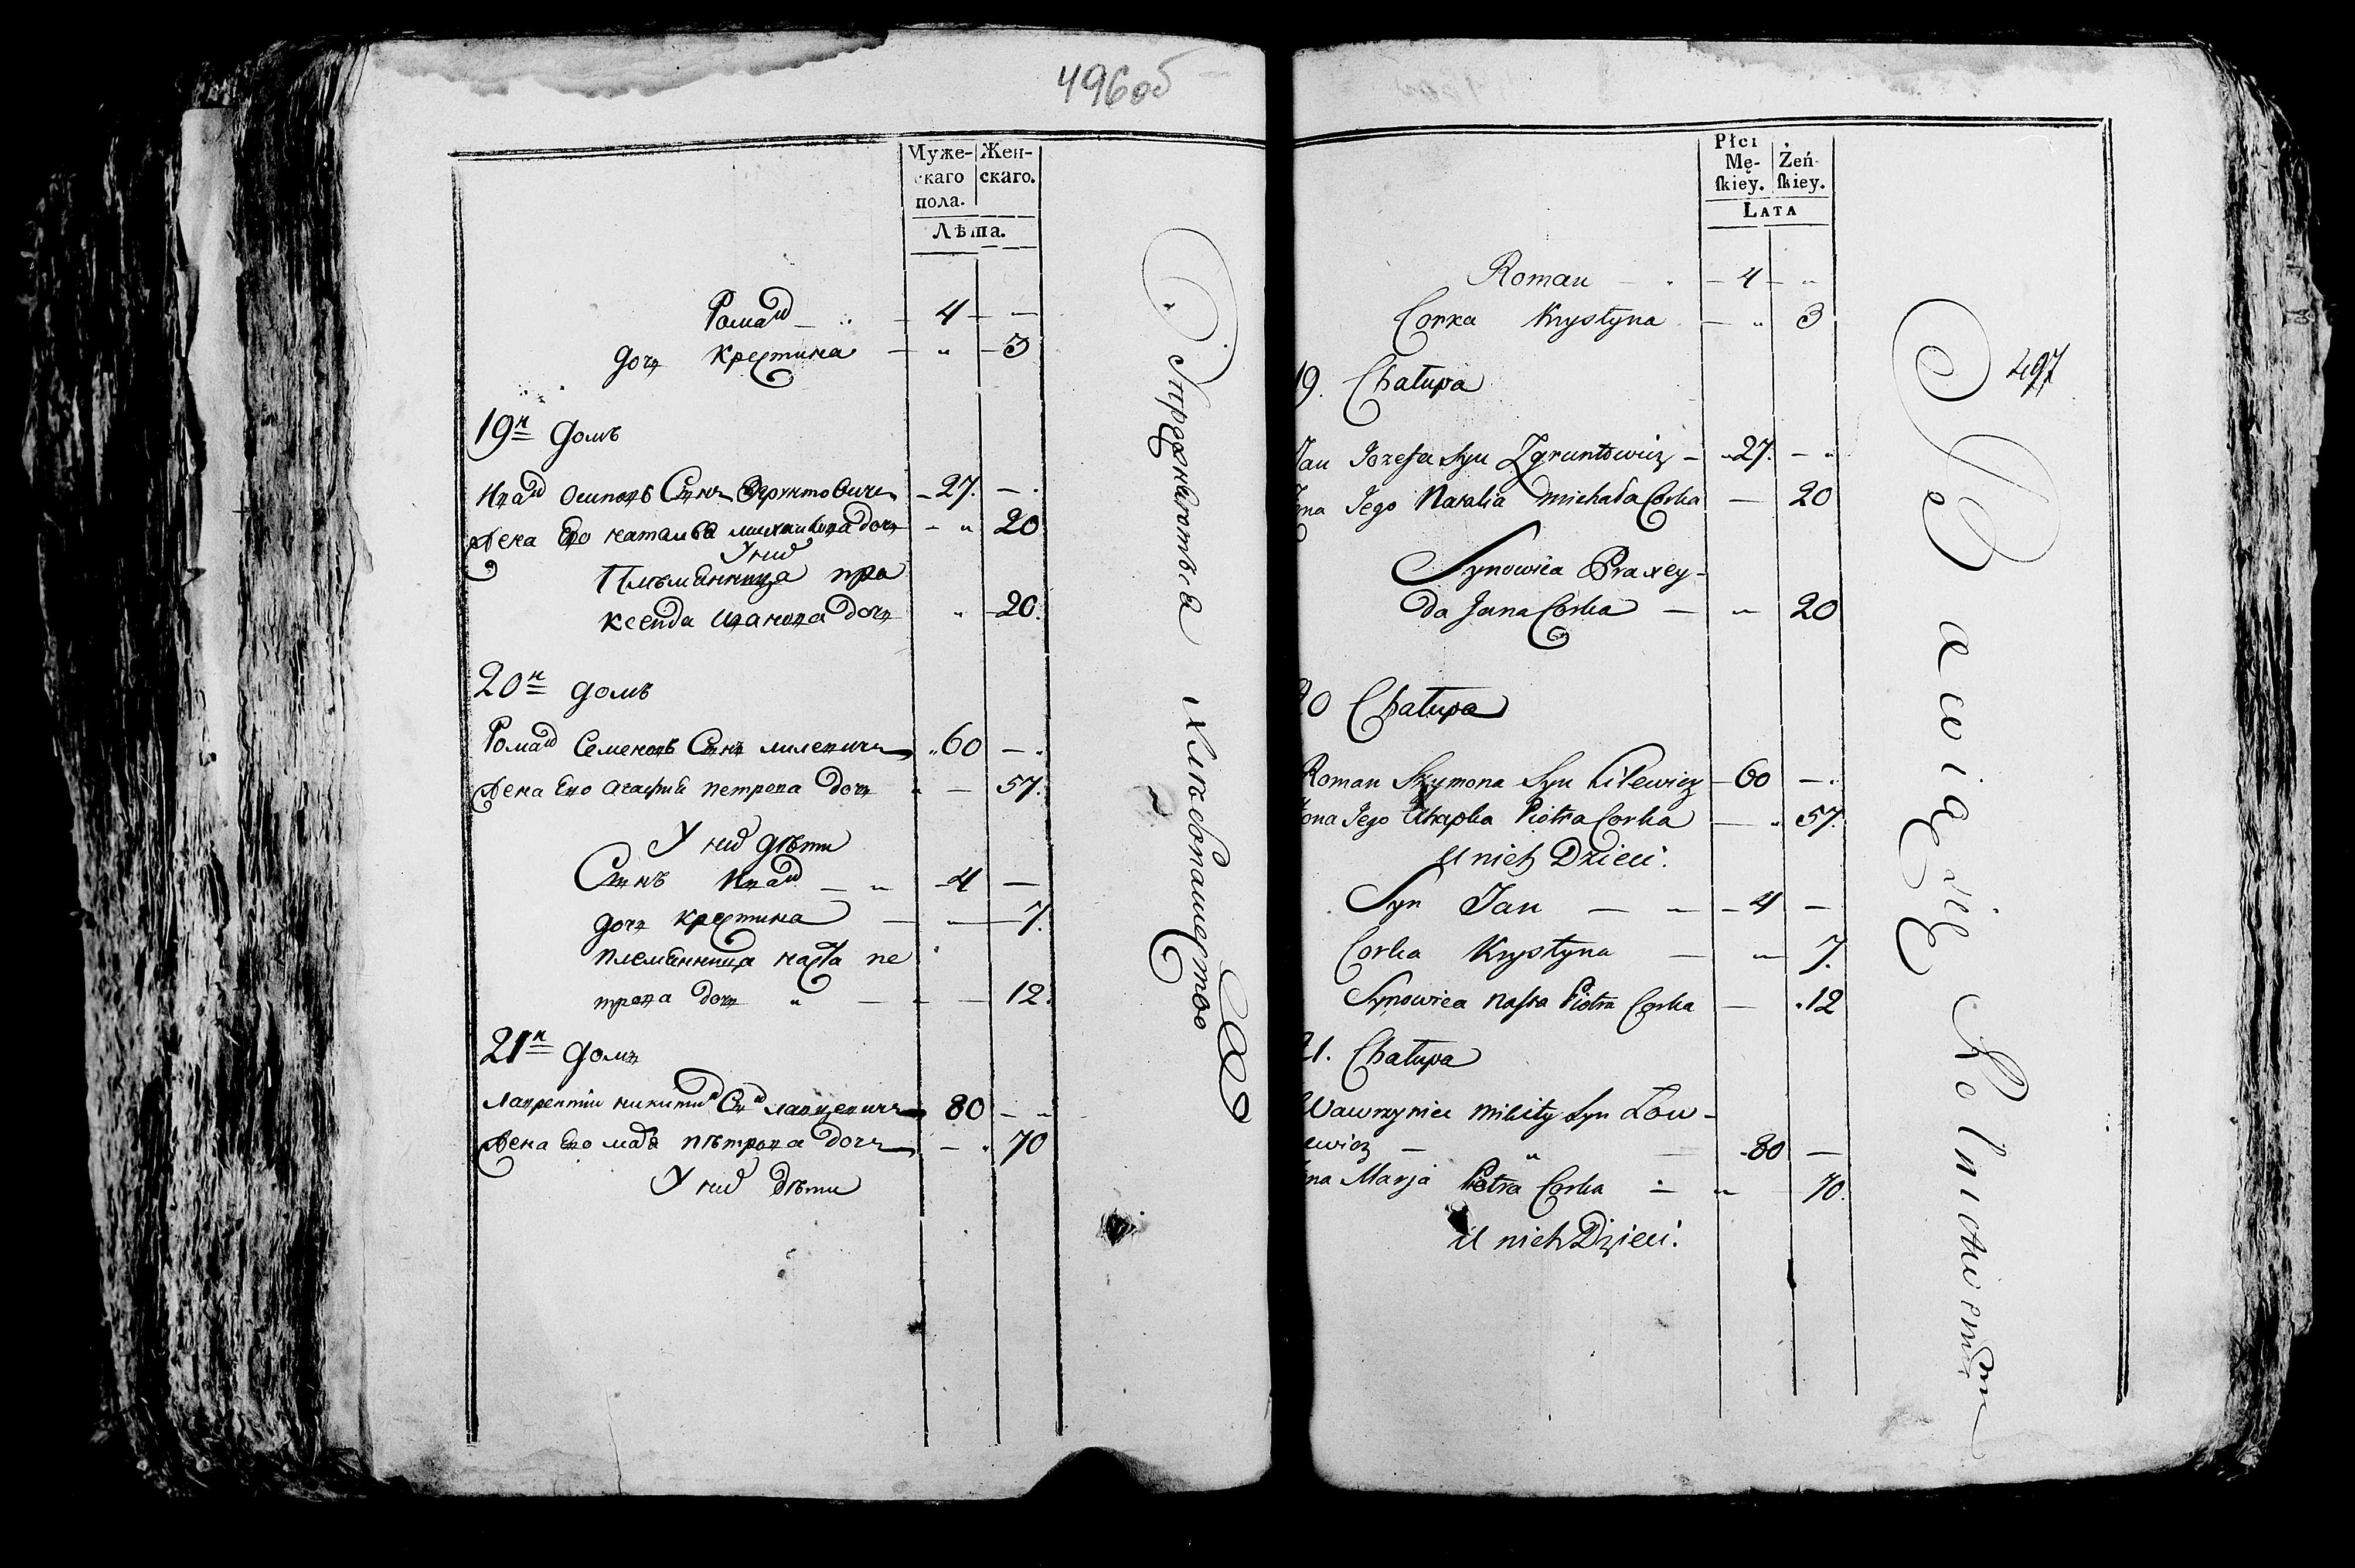 496об
Муже-
скаго
пола.
Жен-
скаго.
Лѣта.
Романъ — 4 —
дочь Крестина — " — 3
19й домъ
Иванъ Осиповъ Сынъ Згрунтовичь — 27. —
Жена Его Наталья Михайлова дочь — " 20
У них
Племѣнница Пра
ксенда Иванова дочь " 20.
20й домъ
Романъ Семеновъ Сынъ Лилевичь 60 —
Жена Его Агафия Петрова дочь — 57.
У них дѣти
Сынъ Иванъ — " 4 —
дочь Крестина — " — 7.
Племѣнница Наста Пе
трова дочь " — 12.
21й домъ
Лаврентий Никитинъ Сынъ Лавцевичь 80 — "
Жена Его Мария Пѣтрова дочь — " 70
У них дѣти
Упражняются
хлѣбопашеством
Płci
Mę-
ſkiey.
Żeń-
ſkiey.
Lata
Roman — 4 — "
Corka Krystyna — " 3
497
19. Chałupa
Jan Jozefa Syn Zgruntowicz — 27. — "
Jego Natalia Michała Corka — 20
Synowica Praxey-
da Jana Corka — " 20
20 Chałupa
Roman Szymona Syn Lilewicz — 60 —
Żona Jego Ahapka Piotra Corka — " 57.
U nich Dzieci.
Syn Jan — " — 4 —
Corka Krystyna — " 7.
Synowica Nasta Piotra Corka — 12
21. Chałupa
Wawrzyniec Mikity Syn Łow-
cewicz — " — 80 —
Marja Piotra Corka — " 70.
U nich Dzieci.
Bawią się Rolnictwem